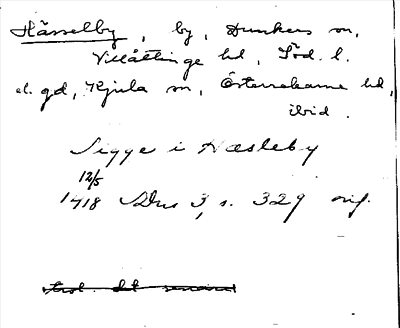 Hässelby, by, Dunkers sn,
Villåttinge hd, Söd. l.
el. gd, Kjula sn, Österrekarne hd,
ibid.
Sigge i Hæsleby
12/5
1418 SDns 3, s. 329 orig.